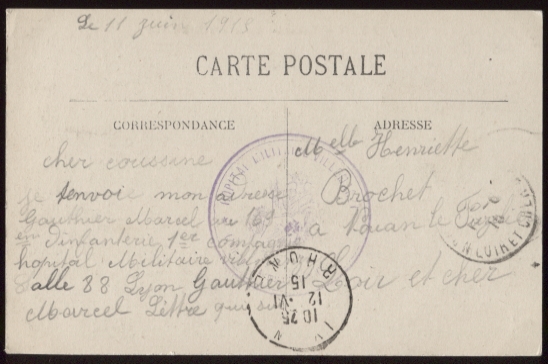 Le 11 juin 1915
CARTE POSTALE
CORRESPONDANCE
ADRESSE
cher coussine
je tenvoie mon adresse
Gauthier Marcel au 169
em d'infanterie 1er
hopital Militaire
salle 88 Lyon Gauthier
Marcel Lettre qui
Melle Henriette
Brochet
a Nouan le Fuzelier
Loir et cher
HOPITAL MILITAIRE
LYON
RHONE
10 75
12 -VI
15
LOIR ET CHER